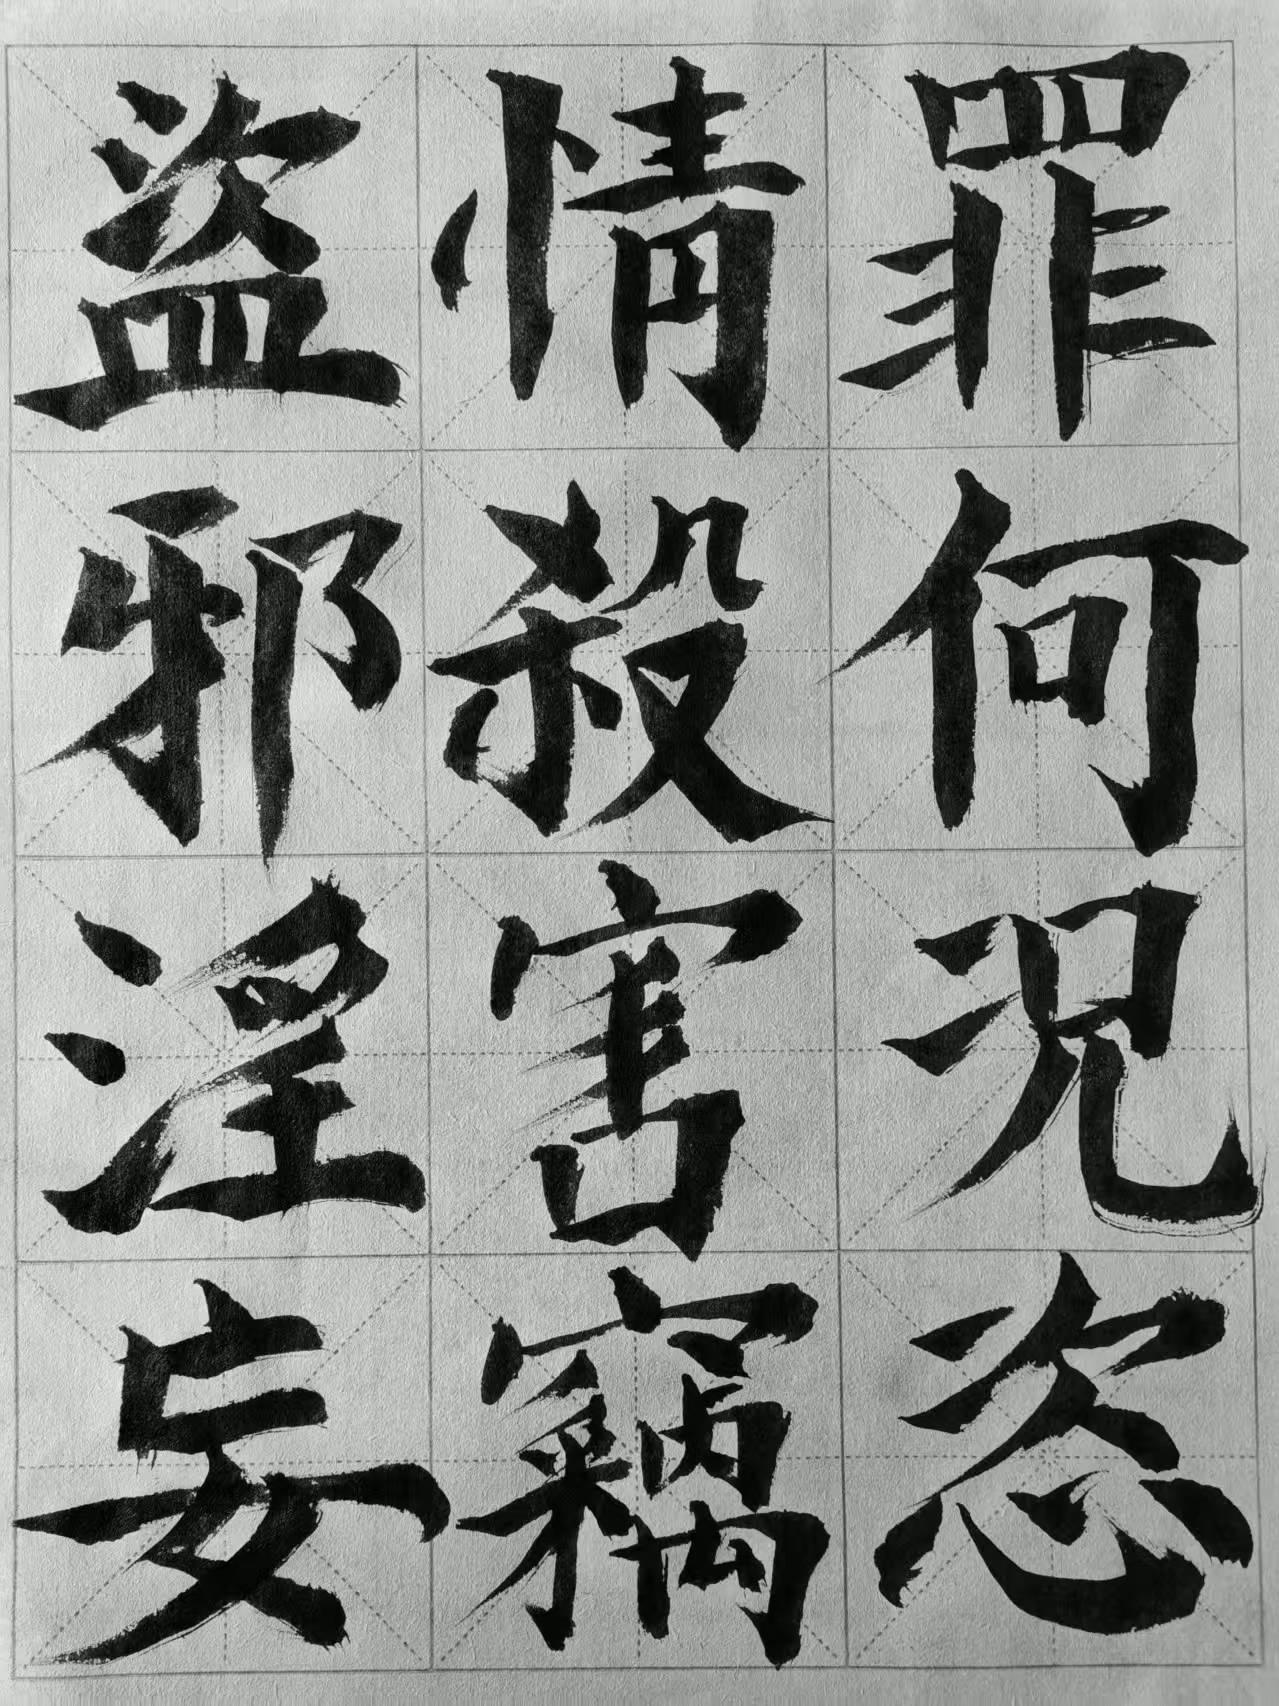 罪何況恣
情殺害竊
盜邪淫妄